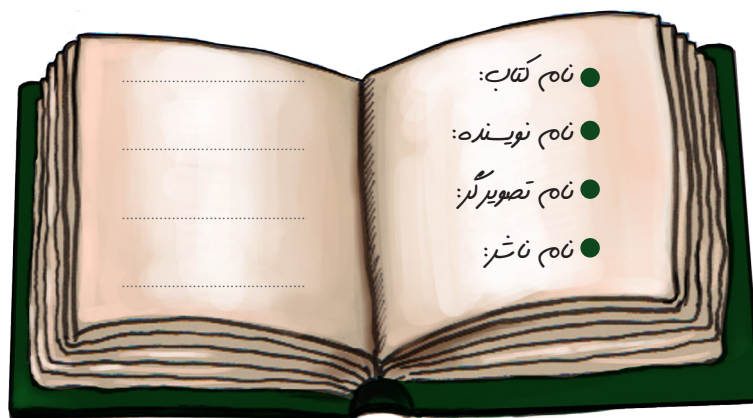 نام کتاب:
نام نویسنده:
نام تصویرگر:
نام ناشر: